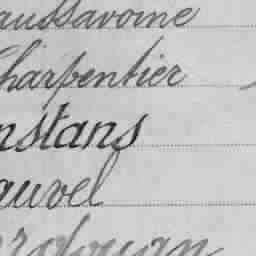 aussavoine
Charpentier
nstans
auvel
rdouan